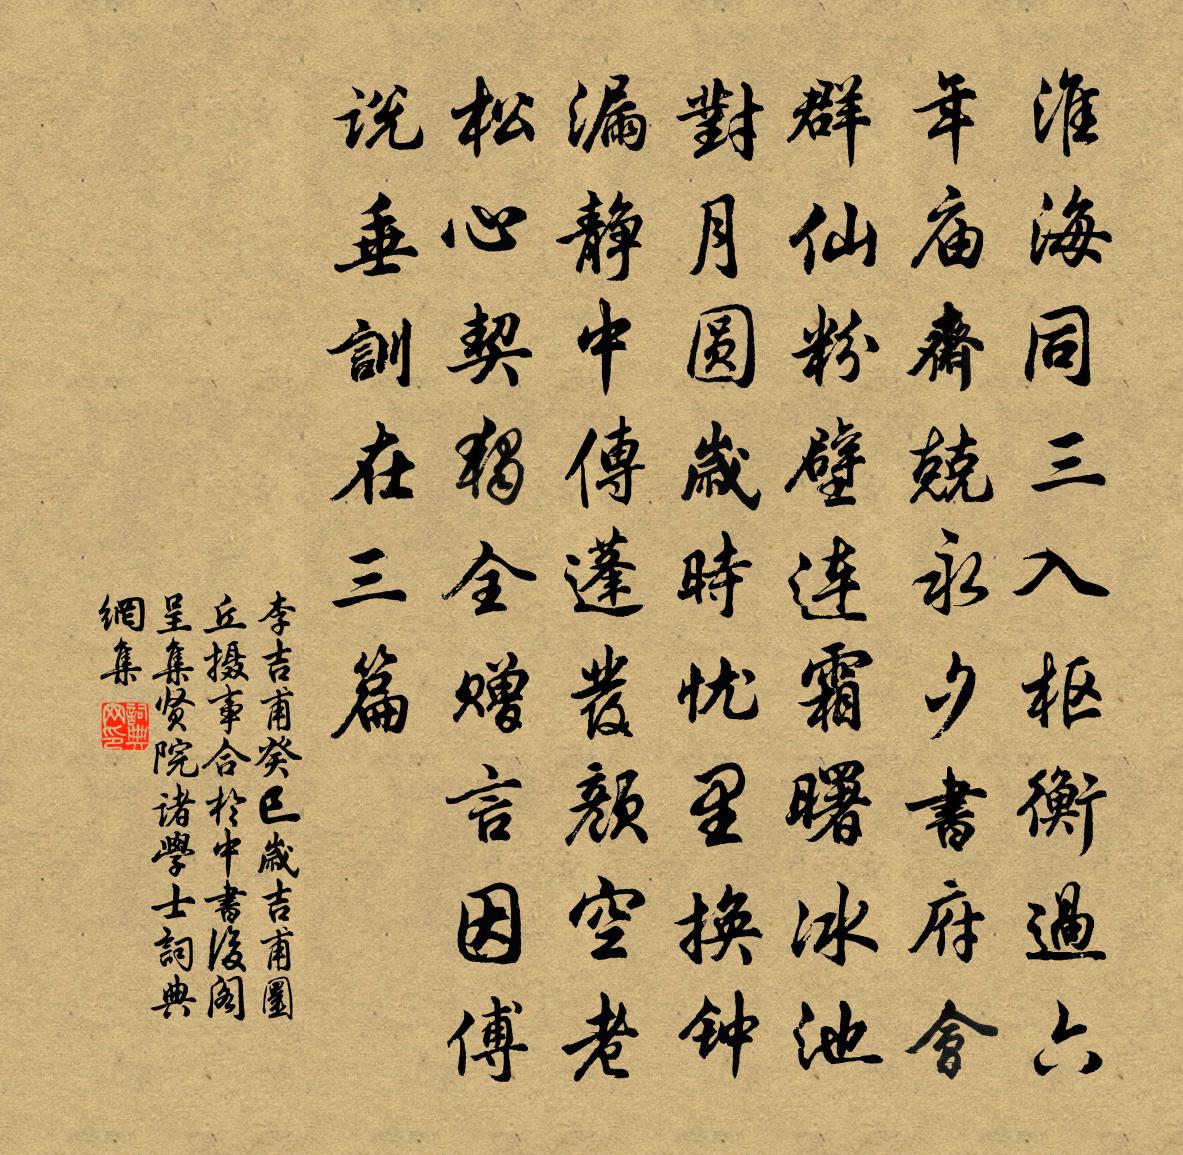 淮海同三入枢衡過六
年庙齋兢永夕書府會
群仙粉壁连霜曙冰池
對月圆歲時忧里换钟
漏静中傳蓬發颜空老
松心契独全赠言因傅
说垂訓在三篇
李吉甫癸巳歲吉甫圜
丘摄事合於中書後阁
呈集贤院诸學士詞典
網集
詞典网印